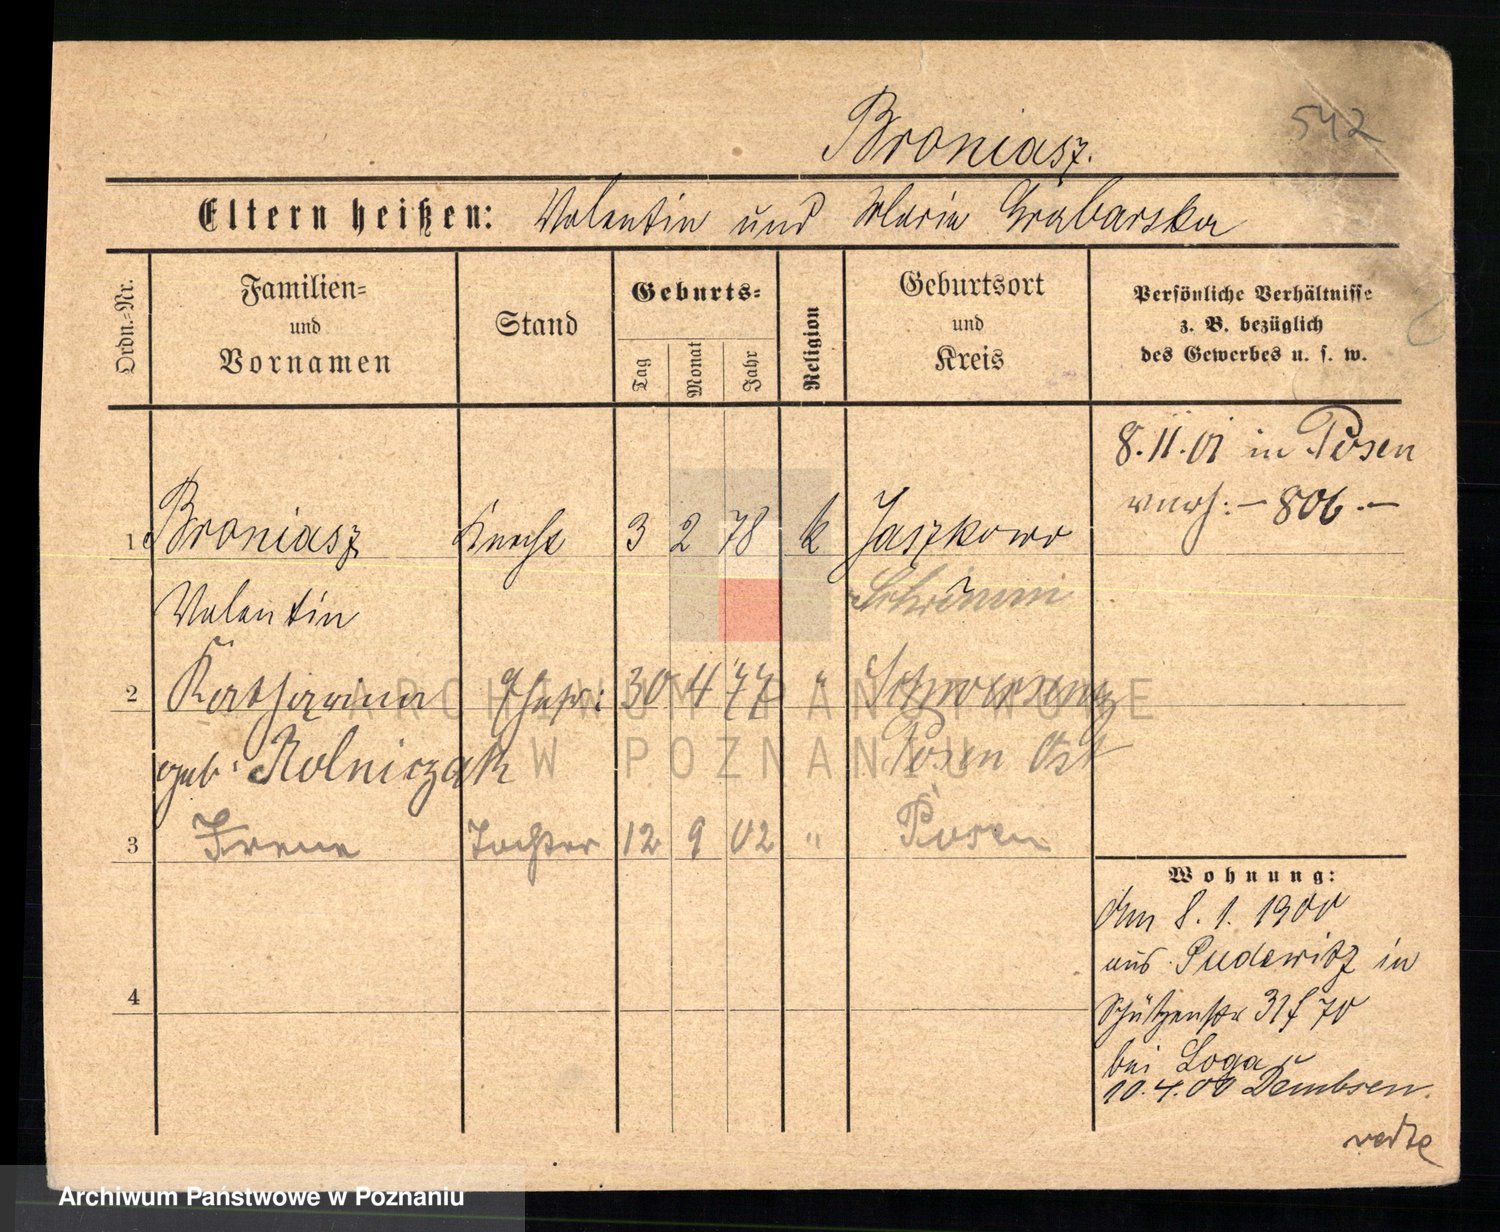 542
Broniasz.
Eltern heißen: Valentin und Maria Grabarska
Ordn.-Nr.
Familien-
und
Vornamen
Stand
Geburts-
Tag
Monat
Jahr
Religion
Geburtsort
und
Kreis
Persönliche Verhältnisse
z. B. bezüglich
des Gewerbes u. s. w.
8.11.01 in Posen
- 806. -
1 Broniasz Knecht 3 2 78 k Jaszkowo
Valentin Schrimm
2 Katharina Ehefr: 30 4 77 " Schwersenz
geb. Rolniczak Posen Ost
3 Irene Tochter 12 9 02 " Posen
4
Wohnung:
Am 8. 1. 1900
aus Pudewitz in
Schützenstr 31 f 70
bei Loga
10.4.00 Dembsen.
ARCHIWUM PAŃSTWOWE
W POZNANIU
Archiwum Państwowe w Poznaniu